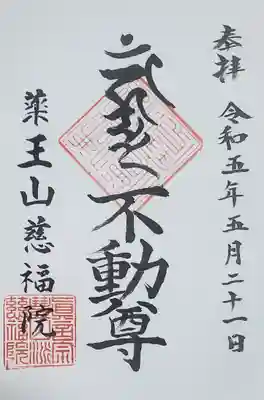 奉拝 令和五年五月二十一日
不動尊
薬王山慈福院